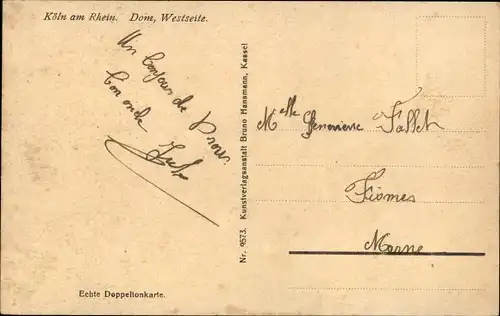 Köln am Rhein. Dom, Westseite.
Un bonjour de
ton oncle
Nr. 9573. Kunstverlagsanstalt Bruno Hansmann, Kassel
Mlle Genevieve Fallet
Fismes
Marne
Echte Doppeltonkarte.